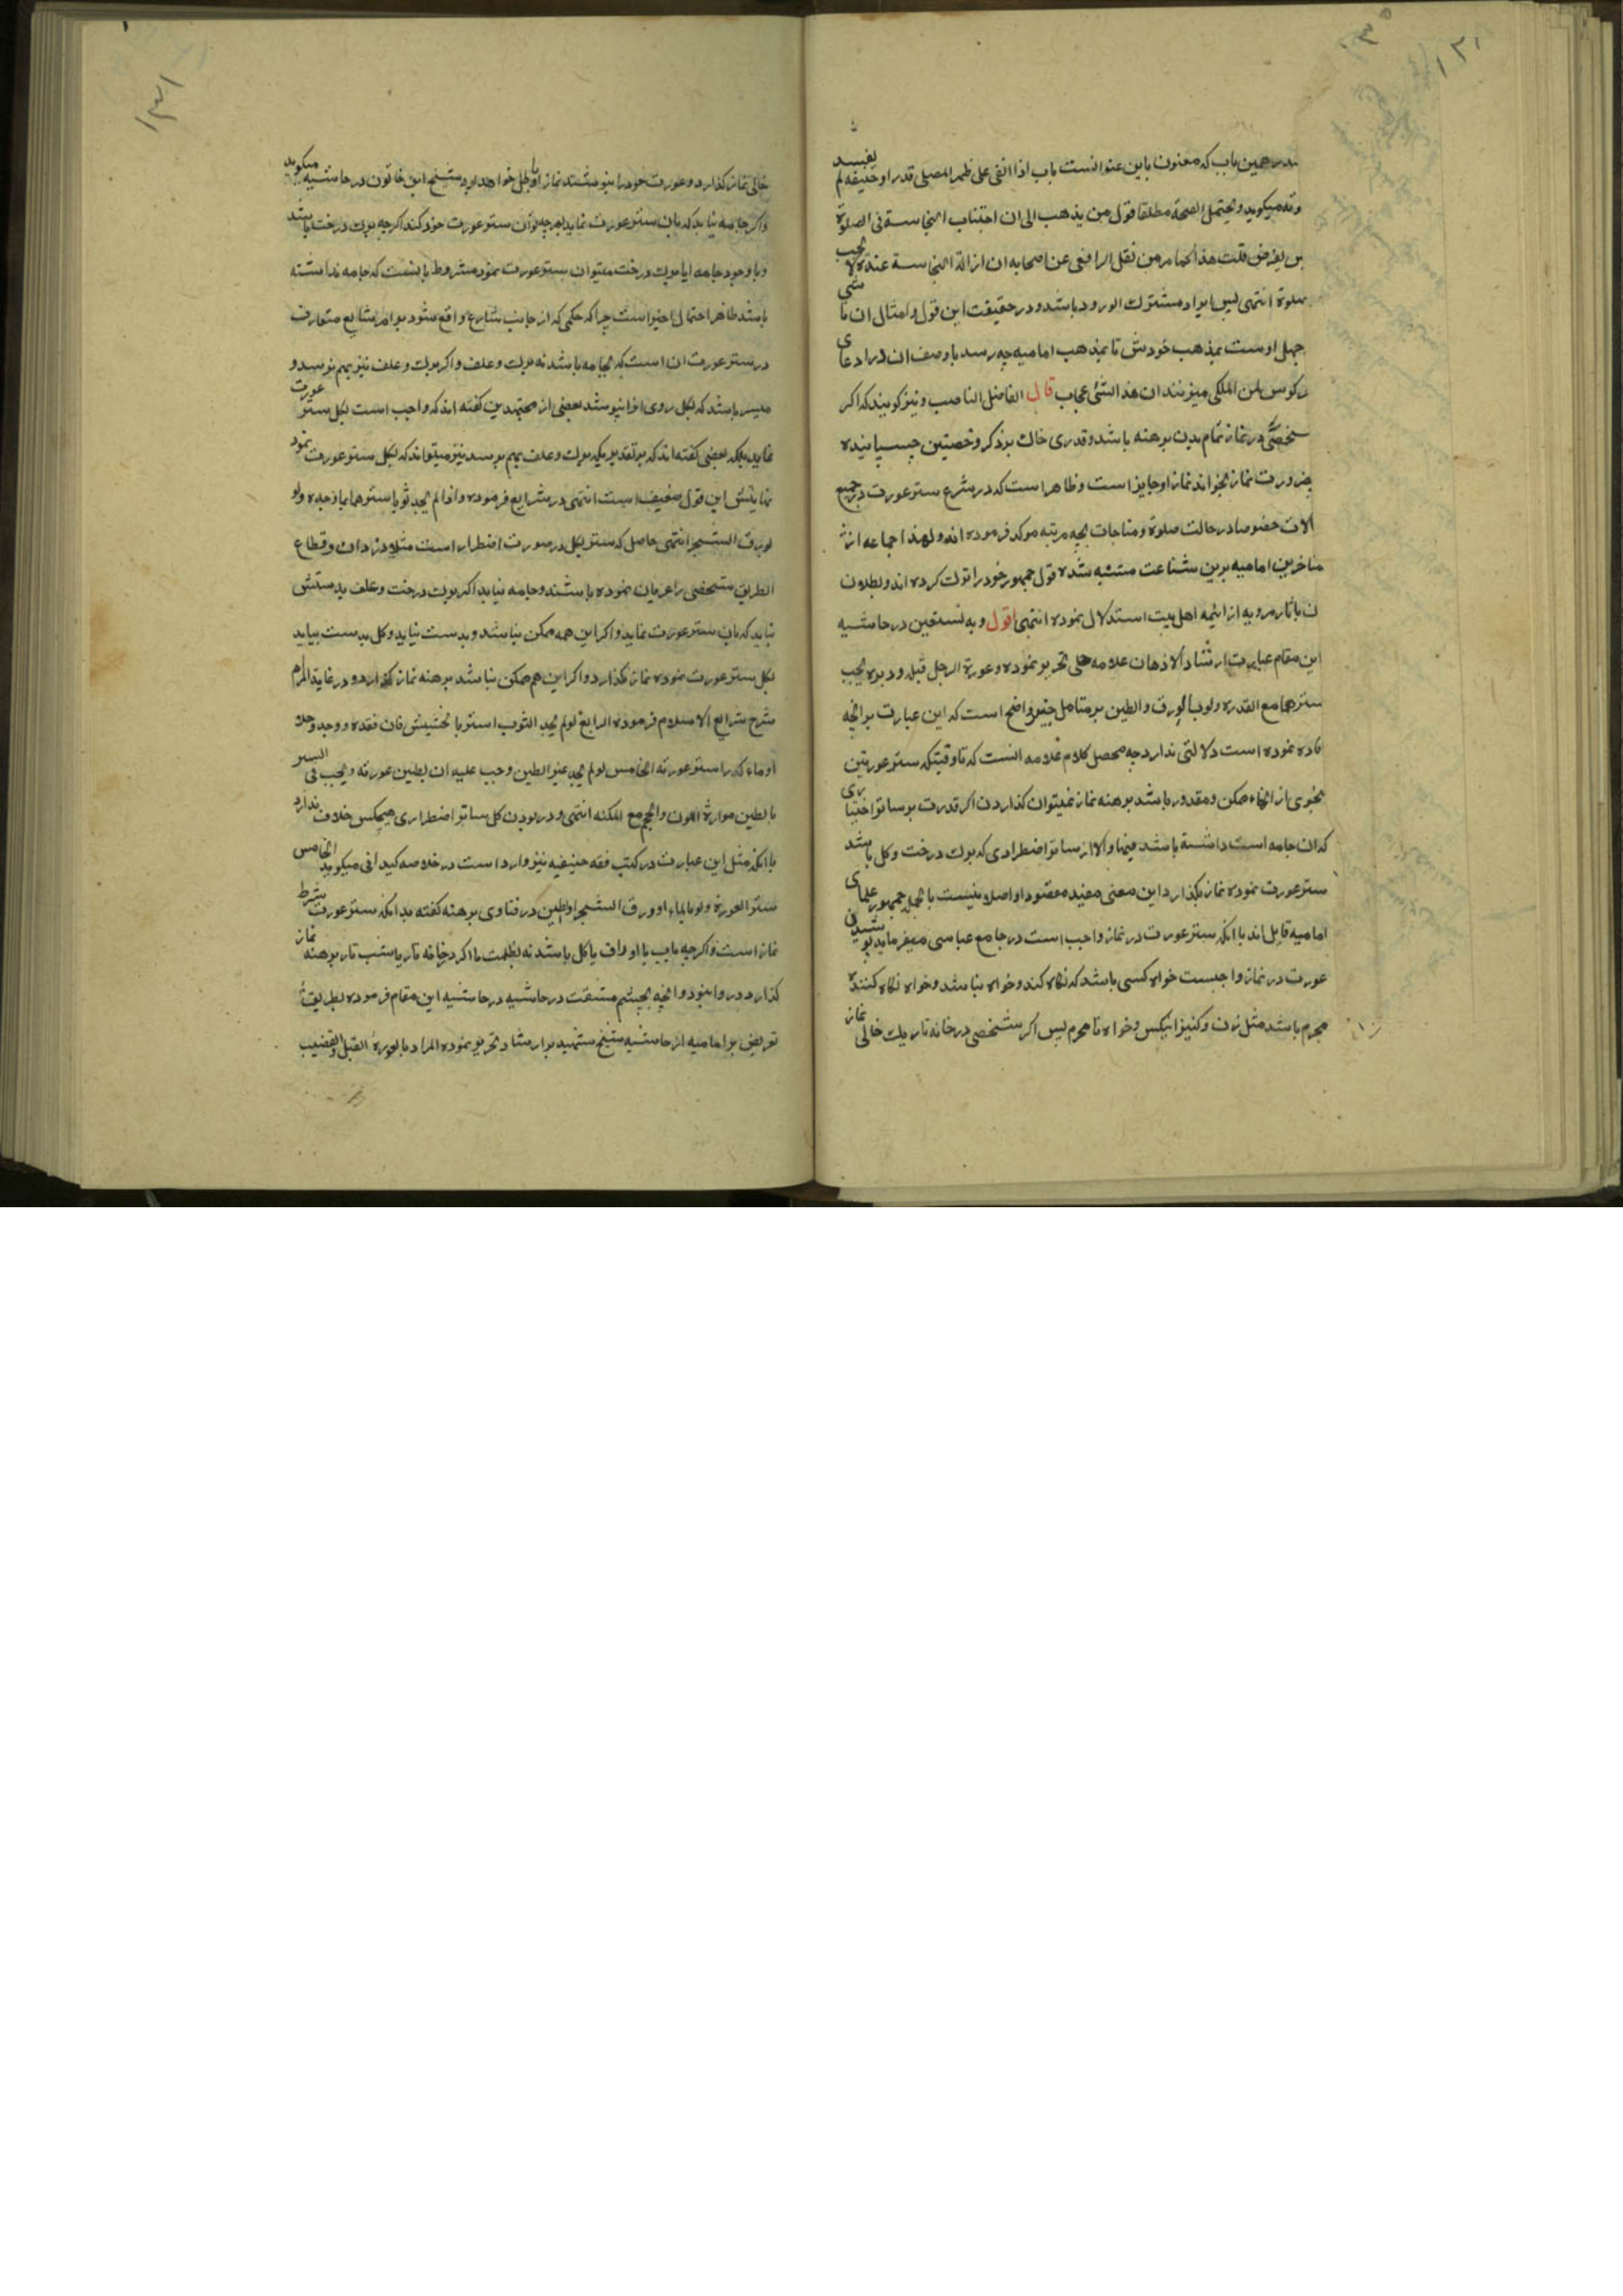 ۱۳۰
۱۳۱
در همین باب که معنون باین عنوانست باب اذا القی علی ظهر المصلی قدر او جیفه لم یفسد
وته میکوید و یحتمل الصحة مطلقا قول من یذهب الی ان اجتناب النجاسة فی الصلوة
بس بفرض قلت هذا کما مر من نقل الرافعی عن اصحابه ان ازالة النجاسة عنده لا یجب
صلوة انتهی پس ایراد مشترک الورود باشد و در حقیقت این قول و امثال ان نا شی
جهل اوست بمذهب خودش تا بمذهب امامیه چه رسد با وصف ان در ادعای
کوس لمن الملکی میزنند ان هذا لشئ عجاب قال الفاضل الناصب و نیز کویند که اکر
شخصی در نماز تمام بدن برهنه باشد و قدری خاک بر ذکر و خصیتین چسپانیده
بضرورت نماز بخواند نماز او جایز است و ظاهر است که در شرع ستر عورت در جمیع
الات خصوصا در حالت صلوة و مناجات بچه مرتبه موکد فرموده اند و لهذا جماعه از
متاخرین امامیه برین شناعت متنبه شده قول جمهور خود را ترک کرده اند و بطلان
ن باثار مرویه از ائیمه اهل بیت استدلال نموده انتهی اقول و به نستعین در حاشیه
این مقام عبارت ارشاد الاذهان علامه حلی تحریر نموده و عورة الرجل قبله و دبره یجب
سترهما مع القدره ولو بالورق والطین بر متامل خبیر واضح است که این عبارت بر انچه
فاده نموده است دلالتی ندارد چه محصل کلام علامه انست که تا وقتیکه ستر عورتین
بنحوی از انحاء ممکن و مقدور باشد برهنه نماز نمیتوان کذاردن اکر قدرت بر ساتر اختیاری
که ان جامه است داشته باشد فبها و الا از ساتر اضطراری که برک درخت و کل باشد
ستر عورت نموده نماز بکذارد این معنی مفید مقصود او اصلا نیست بالجمله جمهور علمای
امامیه قایل اند با انکه ستر عورت در نماز واجب است در جامع عباسی میفرماید پوشیدن
عورت در نماز واجبست خواه کسی باشد که نکاه کند و خواه نباشد و خواه نکاه کننده
محرم باشد مثل زن و کنیز انکس و خواه نا محرم پس اکر شخصی در خانه تاریک خالی نماز
خالی نماز کذارد و عورت خود را نپوشد نماز او باطل خواهد بود شیخ ابن خاتون در حاشیه میکوید
و اکر جامه نیابد که بان ستر عورت نماید بهر چه توان ستر عورت خود کند اکر چه برک درخت باشد
و با وجود جامه ایا برک درخت میتوان ستر عورت نمود مشروط باینست که جامه نداشته
باشد ظاهر احتمال اخیر است چرا که حکمی که از جانب شارع واقع شود بر امر شایع متعارف
در ستر عورت ان است که بجامه باشد نه برک و علف و اکر برک و علف نیز بهم نرسد و
میسر باشد که بکل روی انرا بپوشد بعضی از مجتهدین کفته اند که واجب است بکل ستر عورت
نماید بلکه بعضی کفته اند که بر تقدیریکه برک و علف بهم برسد نیز میتواند که بکل ستر عورت نمود
نمایش این قول ضعیف است انتهی در شرایع فرموده و اذا لم یجد ثوبا سترهما بما وجده ولو
بورق الشجر انتهی حاصل که ستر بکل در صورت اضطرار است مثلا دزدان و قطاع
الطریق شخصی را عریان نموده باشند و جامه نیابد اکر برک درخت و علف بدستش
نیاید که بان ستر عورت نماید و اکر این همه ممکن نباشد و بدست نیاید و کل بدست بیاید
بکل ستر عورت نموده نماز بکذارد و اکر این هم ممکن نباشد برهنه نماز کذارد و در غایة المرام
شرح شرایع الاسلام فرموده الرابع لو لم یجد الثوب استتر بالحشیش فان فقده و وجد وحلا
او ماء کدرا ستر عورته الخامس لو لم یجد غیر الطین وجب علیه ان یطین عورته و یجب فی الستر
بالطین مواراة اللون و الحجم مع المکنه انتهی و در بودن کل ساتر اضطراری هیچکس خلاف ندارد
با انکه مثل این عبارت در کتب فقه حنیفیه نیز وارد است در خلاصه کیدانی میکوید الخامس
ستر العورة ولو بالماء او ورق الشجر او الطین در فتاوی برهنه کفته بدانکه ستر عورت شرط
نماز است و اکر چه باب یا اوراق یا کل باشد نه بظلمت یا اکر در خانه تار یا شب تار برهنه نماز
کذارد روا نبود و انچه بچشم مشقت در حاشیه در حاشیه این مقام فرموده بطریق
تعریض بر امامیه از حاشیه شیخ شهید بر ارشاد تحریر نموده المراد بالعورة القبل و القضیب